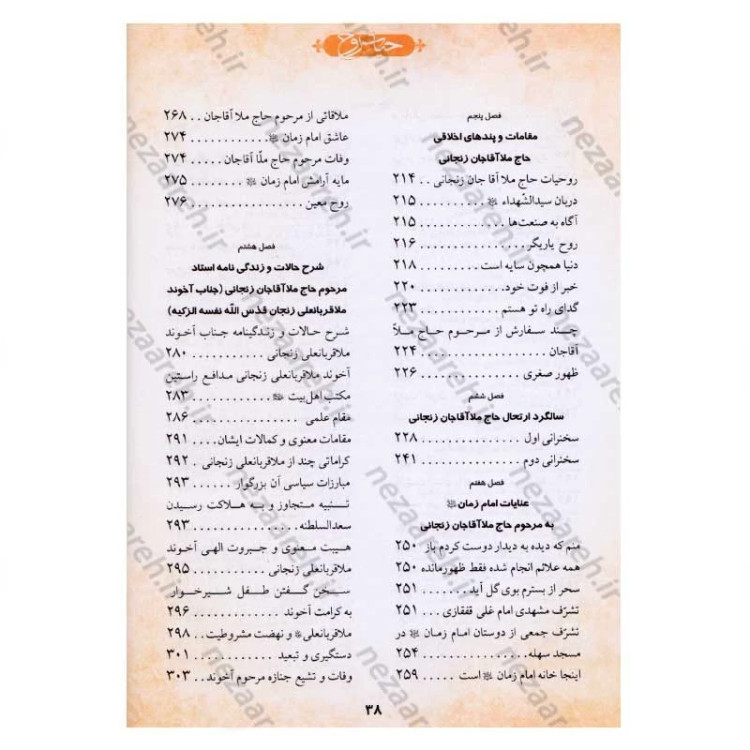 حیات روح
فصل پنجم
مقامات و پندهای اخلاقی
حاج ملاآقاجان زنجانی
روحیات حاج ملا آقا جان زنجانی . . ۲۱۴
دربان سیدالشّهداء . . . . . . . . . . ۲۱۵
آگاه به صنعت‌ها . . . . . . . . . . . . ۲۱۵
روح یاریگر . . . . . . . . . . . . . . . ۲۱۶
دنیا همچون سایه است . . . . . . . . ۲۱۸
خبر از فوت خود . . . . . . . . . . . . ۲۲۰
گدای راه تو هستم . . . . . . . . . . . ۲۲۳
چند سفارش از مرحوم حاج ملاّ
آقاجان . . . . . . . . . . . . . . . . . . ۲۲۴
ظهور صغری . . . . . . . . . . . . . . . ۲۲۶
فصل ششم
سالگرد ارتحال حاج ملاآقاجان زنجانی
سخنرانی اول . . . . . . . . . . . . . . ۲۲۸
سخنرانی دوم . . . . . . . . . . . . . . ۲۴۱
فصل هفتم
عنایات امام زمان
به مرحوم حاج ملاآقاجان زنجانی
منم که دیده به دیدار دوست کردم باز ۲۵۰
همه علائم انجام شده فقط ظهورمانده ۲۵۰
سحر از بسترم بوی گل آید . . . . . . . ۲۵۱
تشرّف مشهدی امام علی قفقازی . . . ۲۵۱
تشرّف جمعی از دوستان امام زمان در
مسجد سهله . . . . . . . . . . . . . . . ۲۵۴
اینجا خانه امام زمان است . . . . . ۲۵۹
ملاقاتی از مرحوم حاج ملا آقاجان . . ۲۶۸
عاشق امام زمان . . . . . . . . . . . ۲۷۴
وفات مرحوم حاج ملّا آقاجان . . . . ۲۷۴
مایه آرامش امام زمان . . . . . . . ۲۷۵
روح معین . . . . . . . . . . . . . . . . ۲۷۶
فصل هشتم
شرح حالات و زندگی نامه استاد
مرحوم حاج ملاآقاجان زنجانی (جناب آخوند
ملاقربانعلی زنجان قدّس اللّه نفسه الزکیه)
شرح حالات و زندگینامه جناب آخوند
ملاقربانعلی زنجانی . . . . . . . . . . . ۲۸۰
آخوند ملاقربانعلی زنجانی مدافع راستین
مکتب اهل‌بیت . . . . . . . . . . . . ۲۸۳
مقام علمی . . . . . . . . . . . . . . . . ۲۸۶
مقامات معنوی و کمالات ایشان . . . . ۲۹۱
کراماتی چند از ملاقربانعلی زنجانی . ۲۹۲
مبارزات سیاسی آن بزرگوار . . . . . . ۲۹۳
تنبیه متجاوز و به هلاکت رسیدن
سعدالسلطنه . . . . . . . . . . . . . . . ۲۹۳
هیبت معنوی و جبروت الهی آخوند
ملاقربانعلی زنجانی . . . . . . . . . . . ۲۹۵
سخن گفتن طفل شیرخوار
به کرامت آخوند . . . . . . . . . . . . ۲۹۶
ملاقربانعلی و نهضت مشروطیت . . ۲۹۸
دستگیری و تبعید . . . . . . . . . . . . ۳۰۱
وفات و تشیع جنازه مرحوم آخوند . . ۳۰۳
۳۸
nezaareh.ir